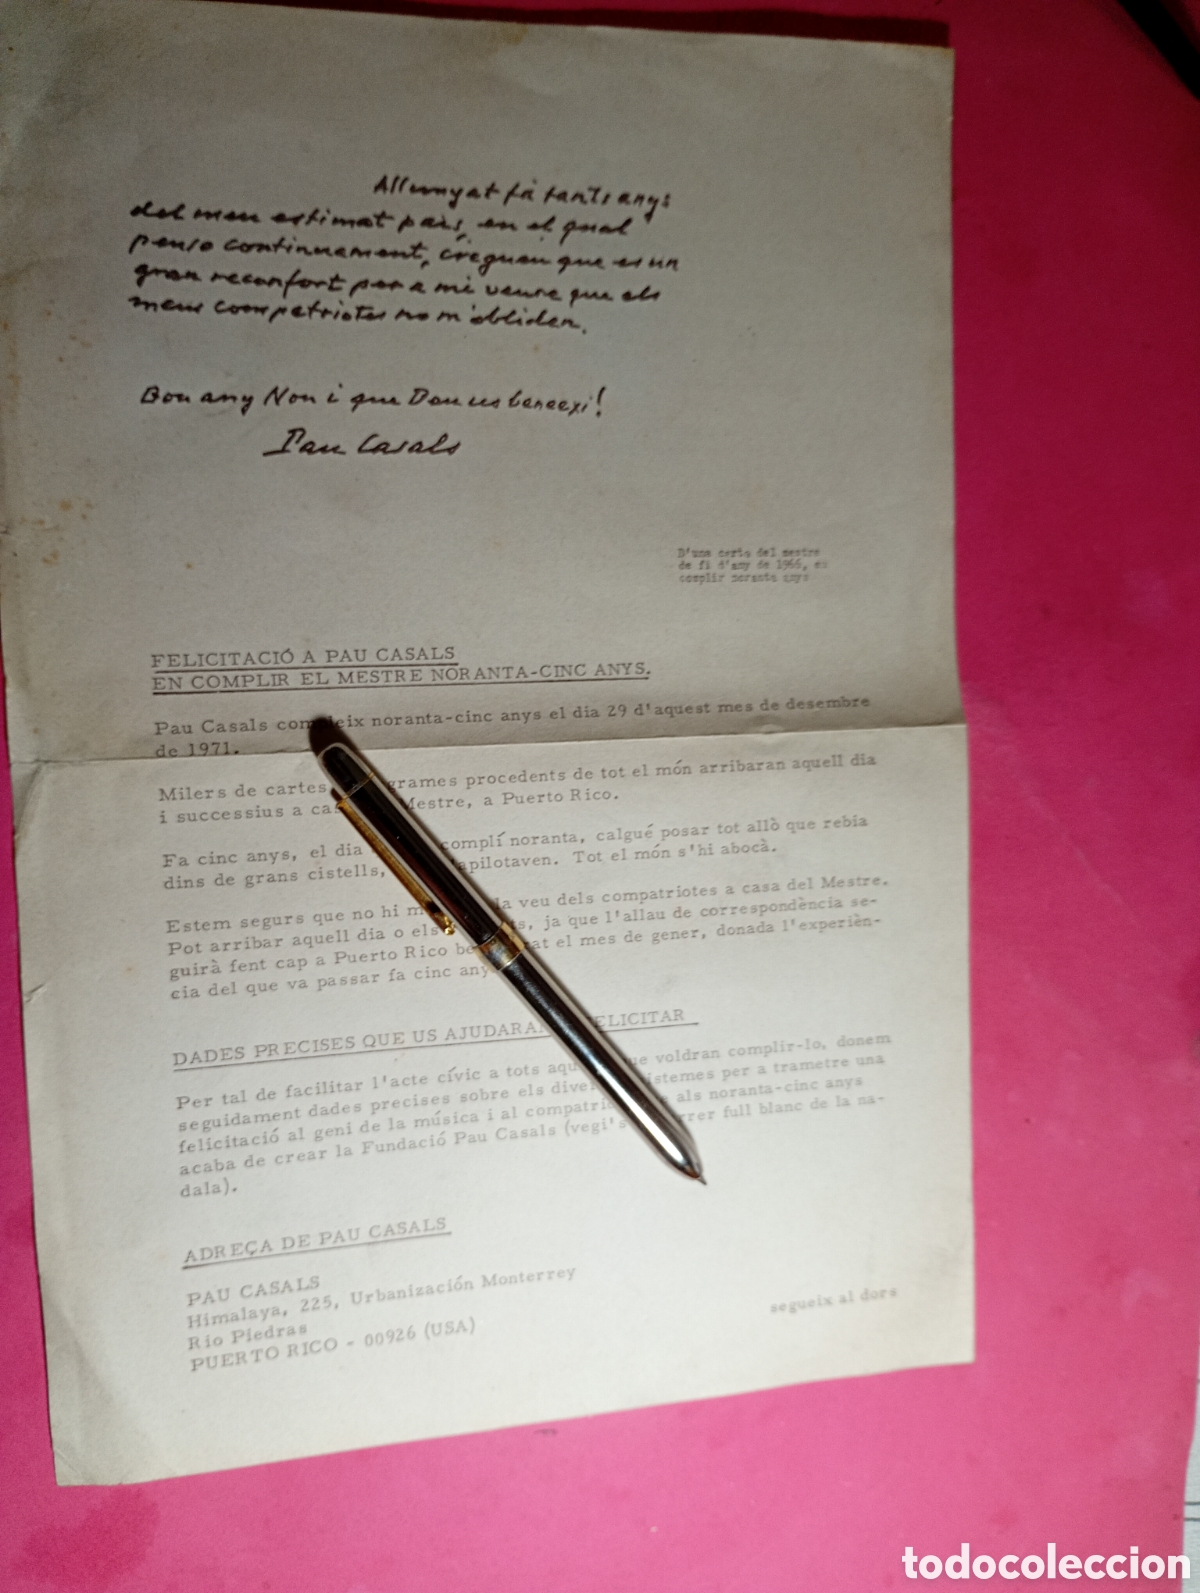 Allunyat fà tants anys
del meu estimat país, en el qual
penso continuament, cregueu que es un
gran reconfort per a mi veure que els
meus compatriotes no m'obliden.
Bon any Nou i que Deu us beneexi!
Pau Casals
D'una carta del mestre
de fi d'any de 1966, en
complir noranta anys
FELICITACIÓ A PAU CASALS
EN COMPLIR EL MESTRE NORANTA-CINC ANYS.
Pau Casals compleix noranta-cinc anys el dia 29 d'aquest mes de desembre
de 1971.
Milers de cartes grames procedents de tot el món arribaran aquell dia
i successius a cas Mestre, a Puerto Rico.
Fa cinc anys, el dia complí noranta, calgué posar tot allò que rebia
dins de grans cistells, apilotaven. Tot el món s'hi abocà.
Estem segurs que no hi m la veu dels compatriotes a casa del Mestre.
Pot arribar aquell dia o els ts, ja que l'allau de correspondència se-
guirà fent cap a Puerto Rico be at el mes de gener, donada l'experièn-
cia del que va passar fa cinc any
DADES PRECISES QUE US AJUDARAN ELICITAR
Per tal de facilitar l'acte cívic a tots aqu ue voldran complir-lo, donem
seguidament dades precises sobre els dive istemes per a trametre una
felicitació al geni de la música i al compatri als noranta-cinc anys
acaba de crear la Fundació Pau Casals (vegi's rrer full blanc de la na-
dala).
ADREÇA DE PAU CASALS
PAU CASALS
Himalaya, 225, Urbanización Monterrey
Rio Piedras
PUERTO RICO - 00926 (USA)
segueix al dors
todocoleccion